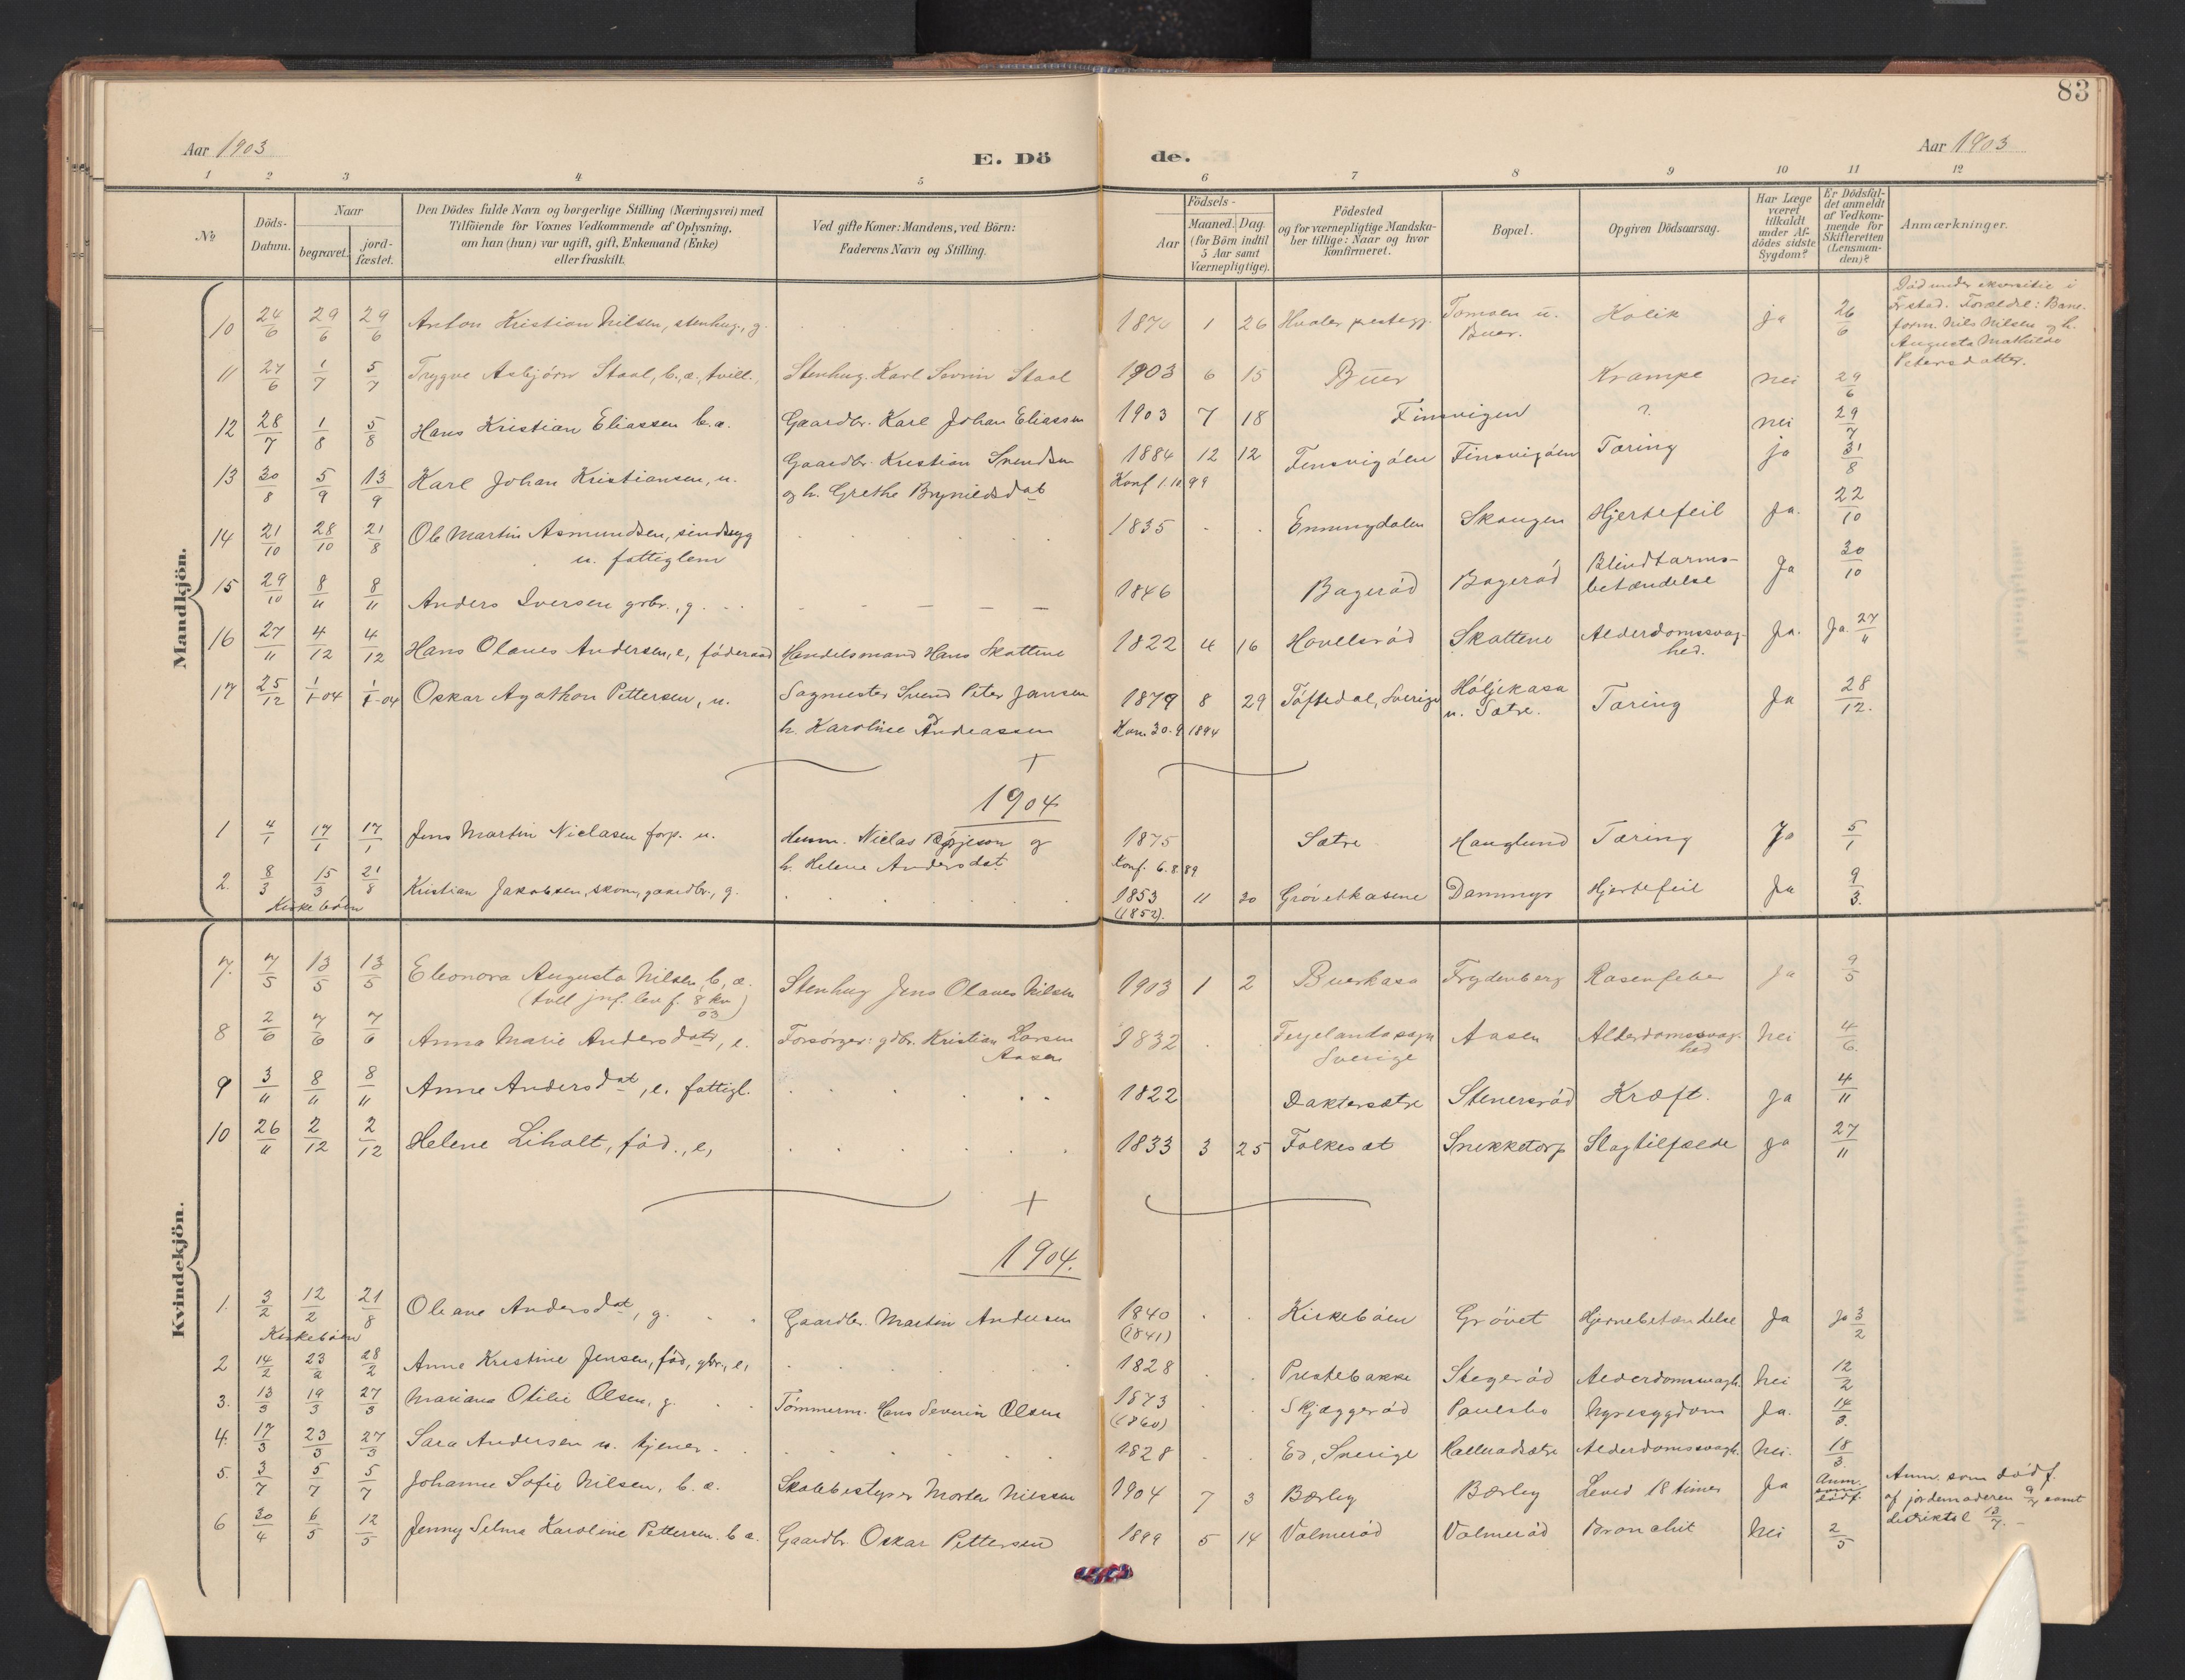 83
Aar 1903
E. Dö
de.
Aar 1903
1 2 3 4 5 6 7 8 9 10 11 12
№
Döds-Datum.
Naar
begravet.
jord-fæstet.
Den Dödes fulde Navn og borgerlige Stilling (Næringsvei) med
Tilföiende for Voxnes Vedkommende af Oplysning,
om han (hun) var ugift, gift, Enkemand (Enke)
eller fraskilt.
Ved gifte Koner: Mandens, ved Börn:
Faderens Navn og Stilling.
Födsels-
Aar
Maaned. Dag.
(for Börn indtil
5 Aar samt
Værnepligtige).
Födested
og for værnepligtige Mandska-
ber tillige: Naar og hvor
konfirmeret.
Bopæl.
Opgiven Dödsaarsag.
Har Læge
været
tilkaldt
under Af-
dödes sidste
Sygdom?
Er Dödsfal-
det anmeldt
af Vedkom-
mende for
Skifteretten
(Lensman-
den)?
Anmærkninger.
Mandkjön.
10 24/6 29/6 29/6 Anton Kristian Nilsen, stenhug., g. 1870 1 26 Hvaler prestegj. Tomten u. Buer. Kolik ja 26/6
Død under exersitie i
Frstad. Forældre: Bane-
form. Nils Nilsen og h.
Augusta Mathilde
Petersdatter.
11 27/6 1/7 5/7 Trygve Asbjørn Staal, b. æ. tvill., Stenhug. Karl Sevrin Staal 1903 6 15 Buer Krampe nei 29/6
12 28/7 1/8 5/8 Hans Kristian Eliassen b. æ. Gaardbr. Karl Johan Eliassen 1903 7 18 Finsvigen ? nei 29/7
13 30/8 5/9 13/9 Karl Johan Kristiansen, u. Gaardbr. Kristian Svendsen 1884 12 12 Finsvigöen Finsvigöen Tæring ja 31/8
og h. Grethe Brynildsdat Konf 1.10.99
14 21/10 28/10 21/8 Ole Martin Asmundsen, sindssyg 1835 Enningdalen Skaugen Hjertefeil Ja. 22/10
u. fattiglem
15 29/10 8/11 8/11 Anders Iversen grbr., g. 1846 Bagerød Bagerød Blindtarms-
betændelse Ja 30/10
16 27/11 4/12 4/12 Hans Olaves Andersen, e, föderaad Handelsmand Hans Skottene 1822 4 16 Hovelsrød Skottene Alderdomssvag-
hed. Ja. Ja. 27/11
17 25/12 1/1-04 1/1-04 Oskar Agathon Pettersen, u. Sagmester Svend Peter Jansen 1879 8 29 Töftedal, Sverige Höljekasa
u. Sætre. Tæring Ja 28/12.
h. Karoline Andreassen Kon. 30.9 1894
1904
1 4/1 17/1 17/1 Jens Martin Niclasen forp. u. Husm. Niclas Børjeson og 1875 Sætre Hauglund Tæring Ja 5/1
h. Helene Andersdat. Konf. 6.8.89
2. 8/3 15/3 21/8 Kristian Jakobsen, skom, gaardbr., g. 1853 11 20 Grövetkasene Dammyr Hjertefeil Ja 9/3.
Kirkeböen (1852).
Kvindekjön.
7. 7/5 13/5 13/5 Eleonora Augusta Nilsen, b, æ. Stenhug Jens Olaves Nilsen 1903 1 2 Buerkasa Frydenberg Rosenfeber Ja 9/5
(tvill jnf. lev f. 8 kv/03)
8 2/6 7/6 7/6 Anna Marie Andersdatr, e. Forsörger: gdbr. Kristian Larsen
Aasen 1832 Sverige Aasen Alderdomssvag-
hed Nei 4/6.
9 3/11 8/11 8/11 Anne Andersdat, e. fattigl. 1822 Daktersætre Stenersrød Kræft. Ja 4/11
10 26/11 2/12 2/12 Helene Liholt, föd., e, 1833 3 25 Folkesæt Snekketorp Slagtilfælde Ja 27/11
1904.
1. 3/2 12/2 21/8 Oleane Andersdat, g. Gaardbr. Martin Andersen 1840 Kirkebøen Grövet Hjernebetændelse Ja Ja 3/2
Kirkebøen (1841)
2 14/2 23/2 28/2 Anne Kristine Jensen, föd, gbr., e, 1828 Prestebakke Stegerød Alderdomssvagh. Nei 12/2
3. 13/3 19/3 27/3 Mariana Otilie Olsen, g. Tömmerm. Hans Severin Olsen 1873 Skjæggerød Paulsbo Nyresygdom Ja. 14/3.
(1860)
4. 17/3 23/3 27/3 Sara Andersen u. tjener 1828 Ed, Sverige Alderdomssvagh. Nei. 18/3.
5. 3/7 5/7 5/7 Johanne Sofie Nilsen, b. æ. Skolebestyrer Morten Nilssen 1904 7 3 Bærby Bærby Leved 18 timer Ja Anm. som dödf.
Anm. som dödf.
af jordemoderen 9/7 samt
distriktsl 13/7.
6 30/4 6/5 12/5 Jenny Selma Karoline Pettersen. b æ. Gaardbr. Oskar Pettersen 1899 5 14 Volmerød Volmerød Bronchit Nei 2/5